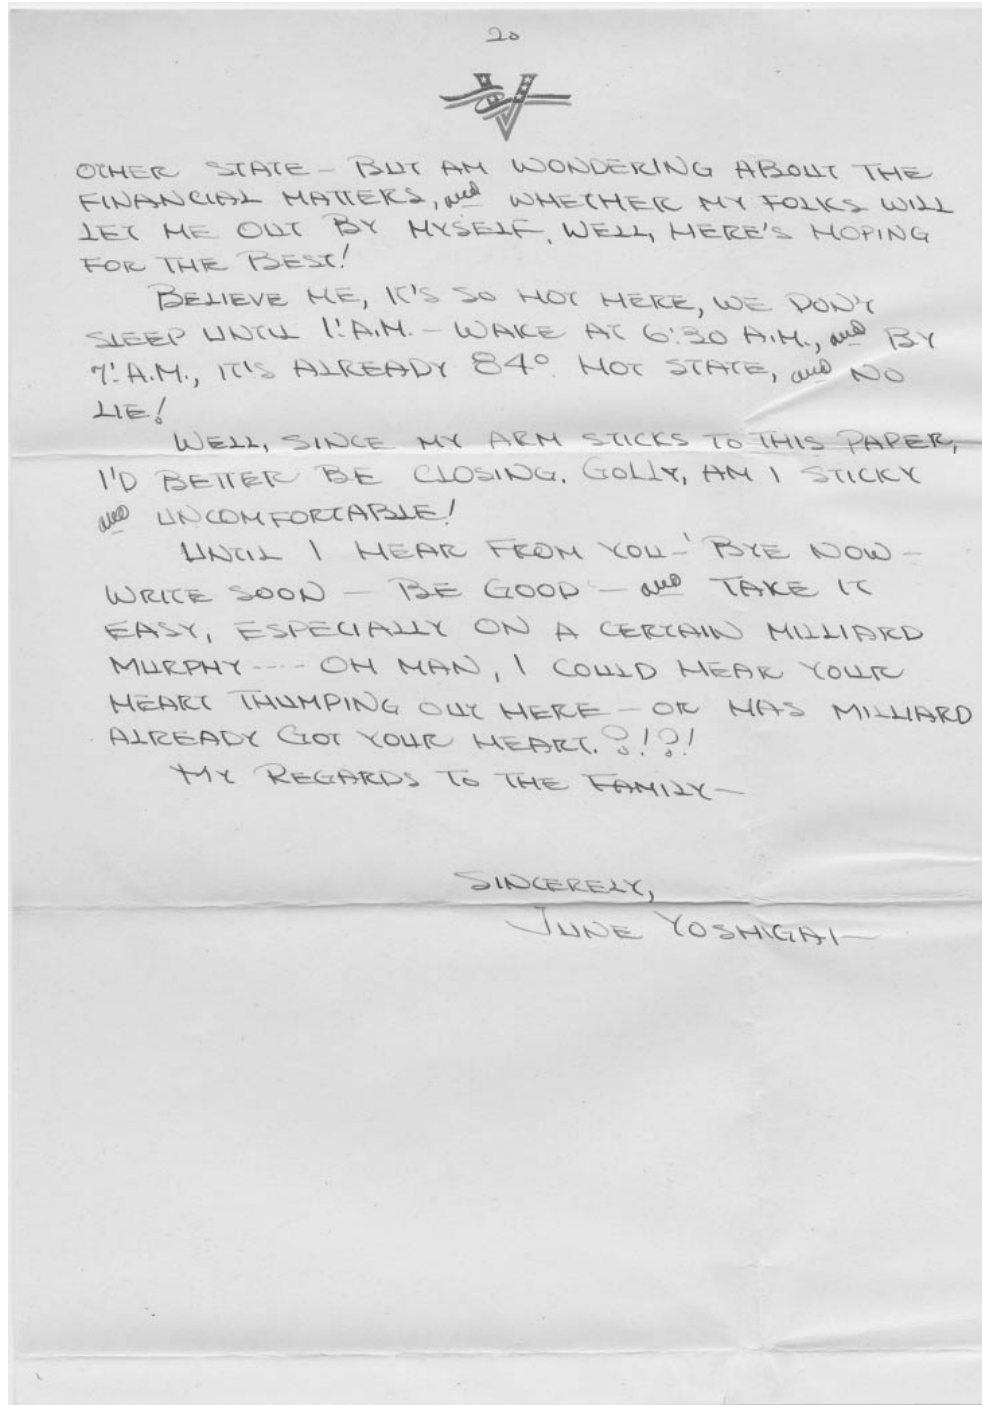 20
OTHER STATE – BUT AM WONDERING ABOUT THE
FINANCIAL MATTERS, and WHETHER MY FOLKS WILL
LET ME OUT BY MYSELF. WELL, HERE'S HOPING
FOR THE BEST!
BELIEVE ME, IT'S SO HOT HERE, WE DON'T
SLEEP UNTIL 1: A.M. – WAKE AT 6:30 A.M., and BY
7: A.M., IT'S ALREADY 84°. HOT STATE, and NO
LIE!
WELL, SINCE MY ARM STICKS TO THIS PAPER,
I'D BETTER BE CLOSING. GOLLY, AM I STICKY
and UNCOMFORTABLE!
UNTIL I HEAR FROM YOU – 'BYE NOW –
WRITE SOON – BE GOOD – and TAKE IT
EASY, ESPECIALLY ON A CERTAIN MILLIARD
MURPHY ---- OH MAN, I COULD HEAR YOUR
HEART THUMPING OUT HERE – OR HAS MILLIARD
ALREADY GOT YOUR HEART. ?!?!
MY REGARDS TO THE FAMILY –
SINCERELY,
JUNE YOSHIGAI –